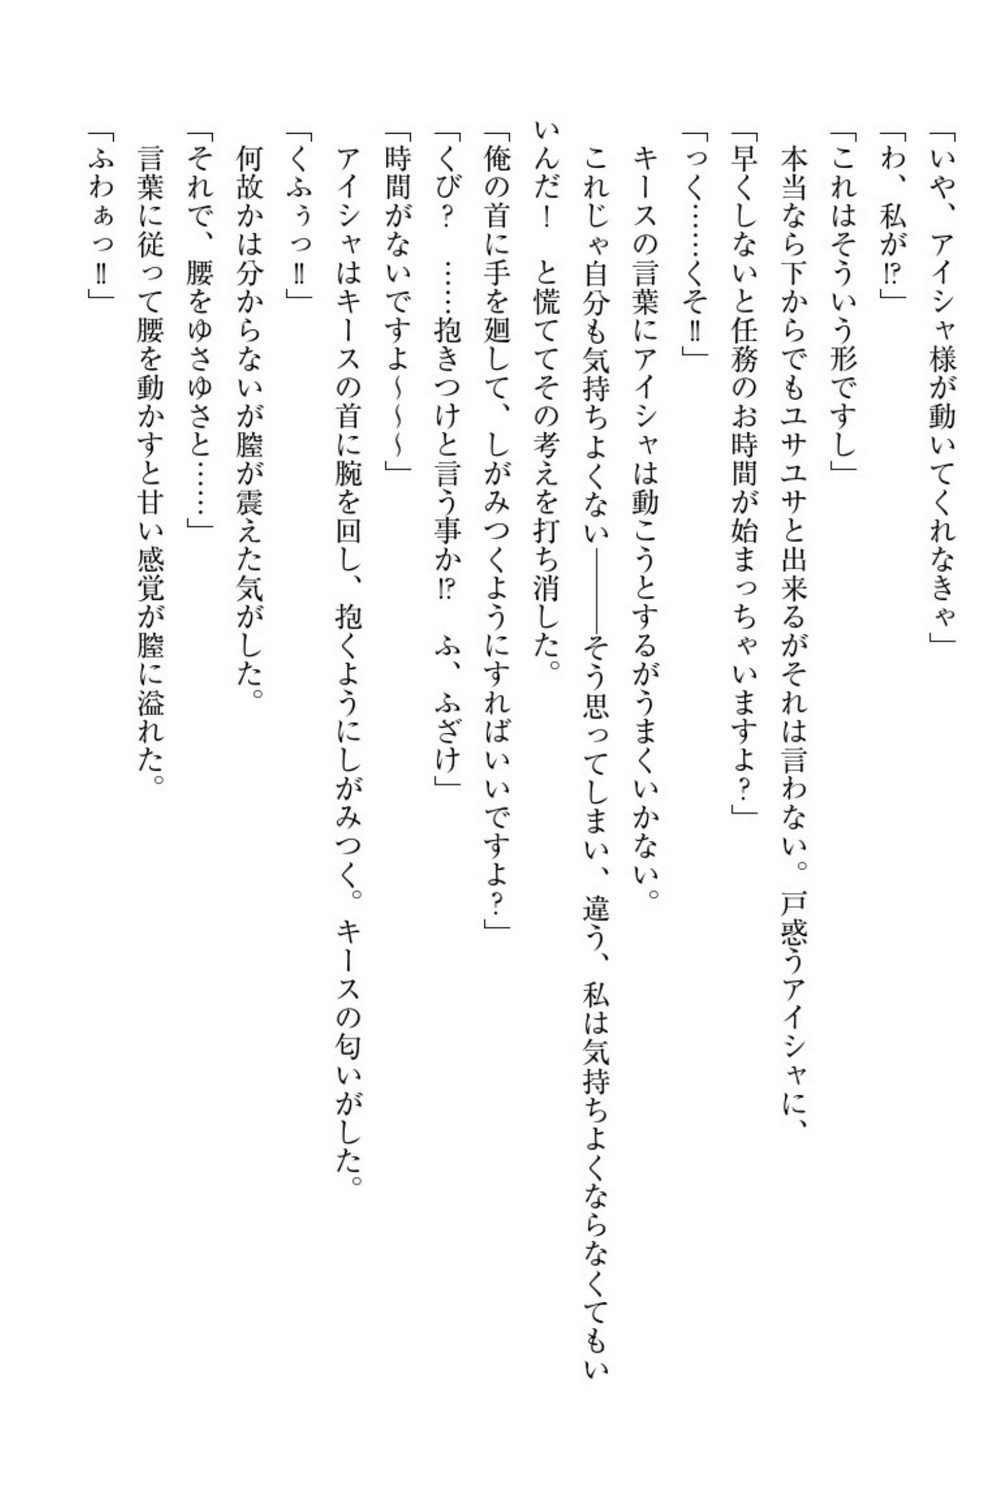 「いや、アイシャ様が動いてくれなきゃ」
「わ、私が!?」
「これはそういう形ですし」
本当なら下からでもユサユサと出来るがそれは言わない。戸惑うアイシャに、
「早くしないと任務のお時間が始まっちゃいますよ?」
「っく……くそ!!」
キースの言葉にアイシャは動こうとするがうまくいかない。
これじゃ自分も気持ちよくない――そう思ってしまい、違う、私は気持ちよくならなくてもい
いんだ! と慌ててその考えを打ち消した。
「俺の首に手を廻して、しがみつくようにすればいいですよ?」
「くび? ……抱きつけと言う事か!? ふ、ふざけ」
「時間がないですよ〜〜〜」
アイシャはキースの首に腕を回し、抱くようにしがみつく。キースの匂いがした。
「くふぅっ!!」
何故かは分からないが膣が震えた気がした。
「それで、腰をゆさゆさと……」
言葉に従って腰を動かすと甘い感覚が膣に溢れた。
「ふわぁっ!!」